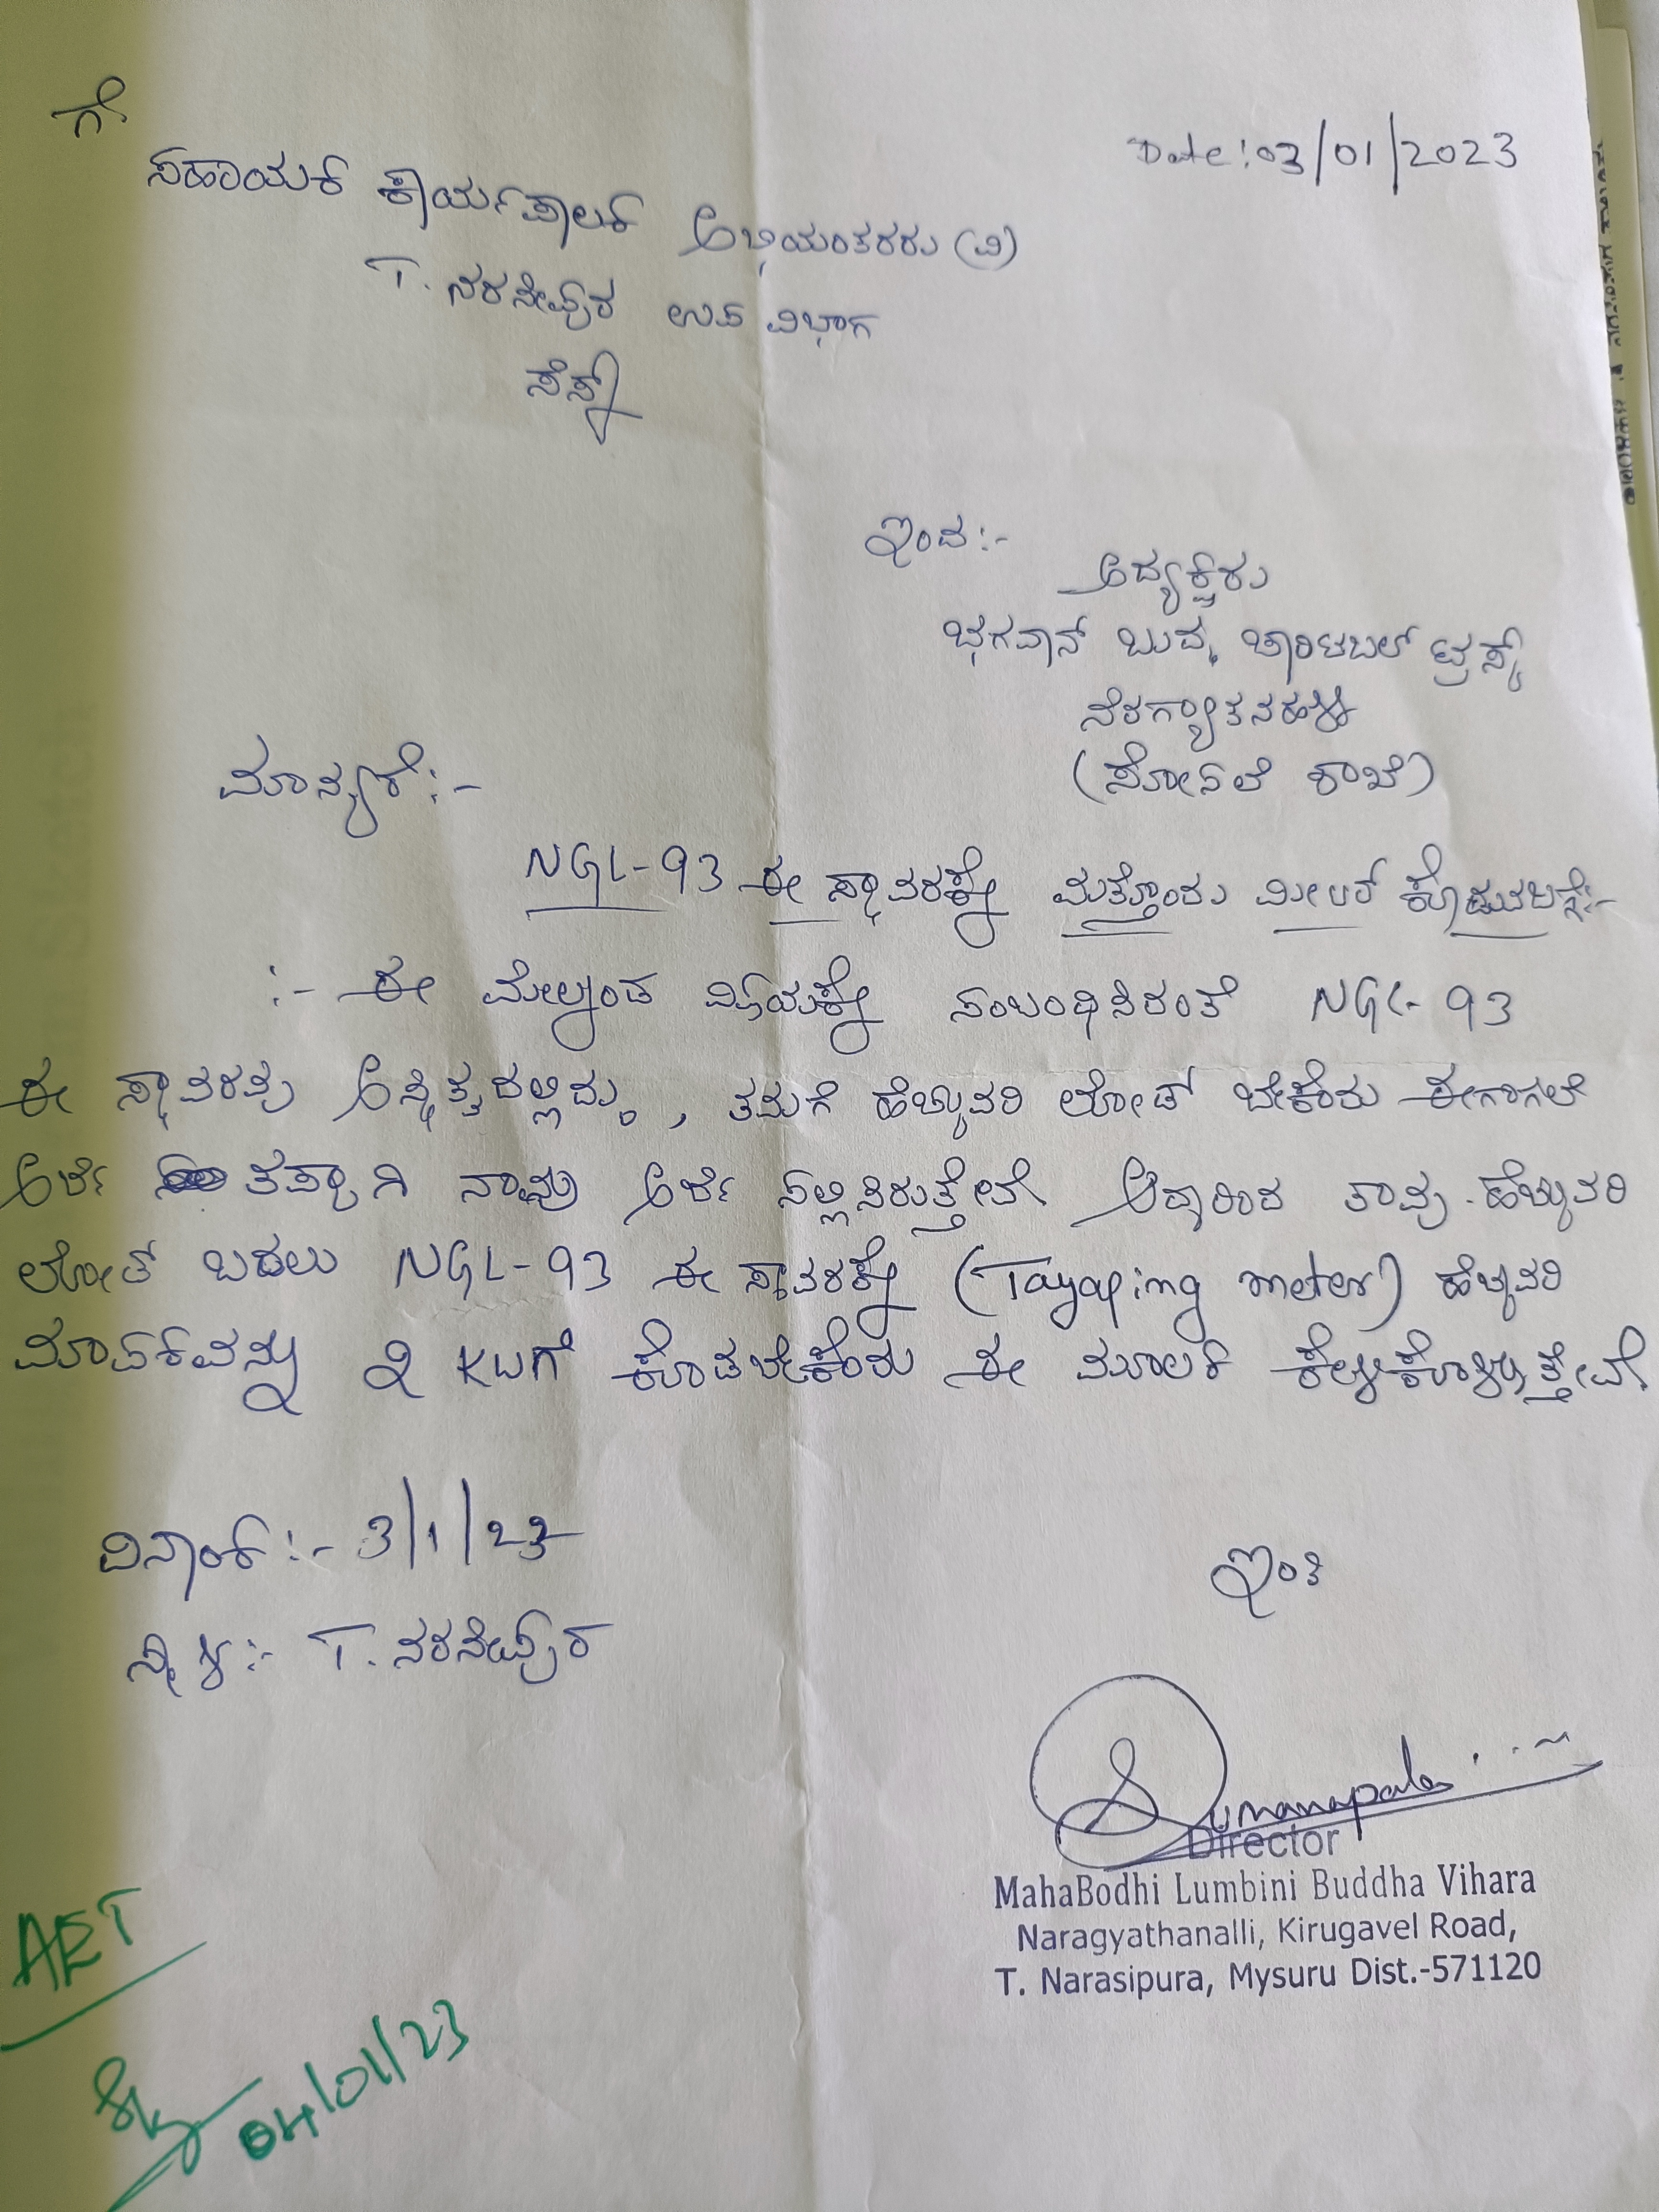 ಗೆ
Date: 03/01/2023
ಸಹಾಯಕ ಕಾರ್ಯಪಾಲಕ ಅಭಿಯಂತರರು (ವಿ)
T. ನರಸೀಪುರ ಉಪ ವಿಭಾಗ
ಸೆಸ್ಕ್
ಇಂದ:-
ಅದ್ಯಕ್ಷರು
ಭಗವಾನ್ ಬುದ್ಧ ಚಾರಿಟಬಲ್ ಟ್ರಸ್ಟ್
ನೆರಗ್ಯಾತನಹಳ್ಳಿ
(ಸೋಸಲೆ ಶಾಖೆ)
ಮಾನ್ಯರೆ:-
NGL-93 ಈ ಸ್ಥಾವರಕ್ಕೆ ಮತ್ತೊಂದು ಮೀಟರ್ ಕೊಡುವಬಗ್ಗೆ:-
:- ಈ ಮೇಲ್ಕಂಡ ವಿಷಯಕ್ಕೆ ಸಂಬಂಧಿಸಿದಂತೆ NGL-93
ಈ ಸ್ಥಾವರವು ಅಸ್ಥಿತ್ವದಲ್ಲಿದ್ದು, ತಮಗೆ ಹೆಚ್ಚುವರಿ ಲೋಡ್ ಬೇಕೆಂದು ಈಗಾಗಲೆ
ಅರ್ಜಿ ತಪ್ಪಾಗಿ ನಾವು ಅರ್ಜಿ ಸಲ್ಲಿಸಿರುತ್ತೇವೆ. ಆದ್ದರಿಂದ ತಾವು ಹೆಚ್ಚುವರಿ
ಲೋಡ್ ಬದಲು NGL-93 ಈ ಸ್ಥಾವರಕ್ಕೆ (Tayaping meter) ಹೆಚ್ಚುವರಿ
ಮಾಪಕವನ್ನು 2 KWಗೆ ಕೊಡಬೇಕೆಂದು ಈ ಮೂಲಕ ಕೇಳಿಕೊಳ್ಳುತ್ತೇವೆ.
ದಿನಾಂಕ:- 3/1/23
ಇಂತಿ
ಸ್ಥಳ:- T. ನರಸೀಪುರ
Sumanapala
Director
MahaBodhi Lumbini Buddha Vihara
Naragyathanalli, Kirugavel Road,
T. Narasipura, Mysuru Dist.-571120
AET
04/01/23